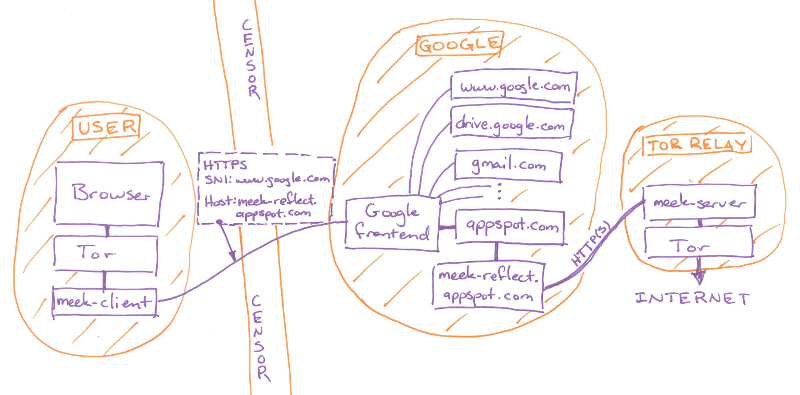 USER
Browser
Tor
meek-client
CENSOR
CENSOR
HTTPS
SNI: www.google.com
Host: meek-reflect.
appspot.com
GOOGLE
www.google.com
drive.google.com
gmail.com
Google
frontend
appspot.com
meek-reflect.
appspot.com
HTTP(S)
TOR RELAY
meek-server
Tor
INTERNET